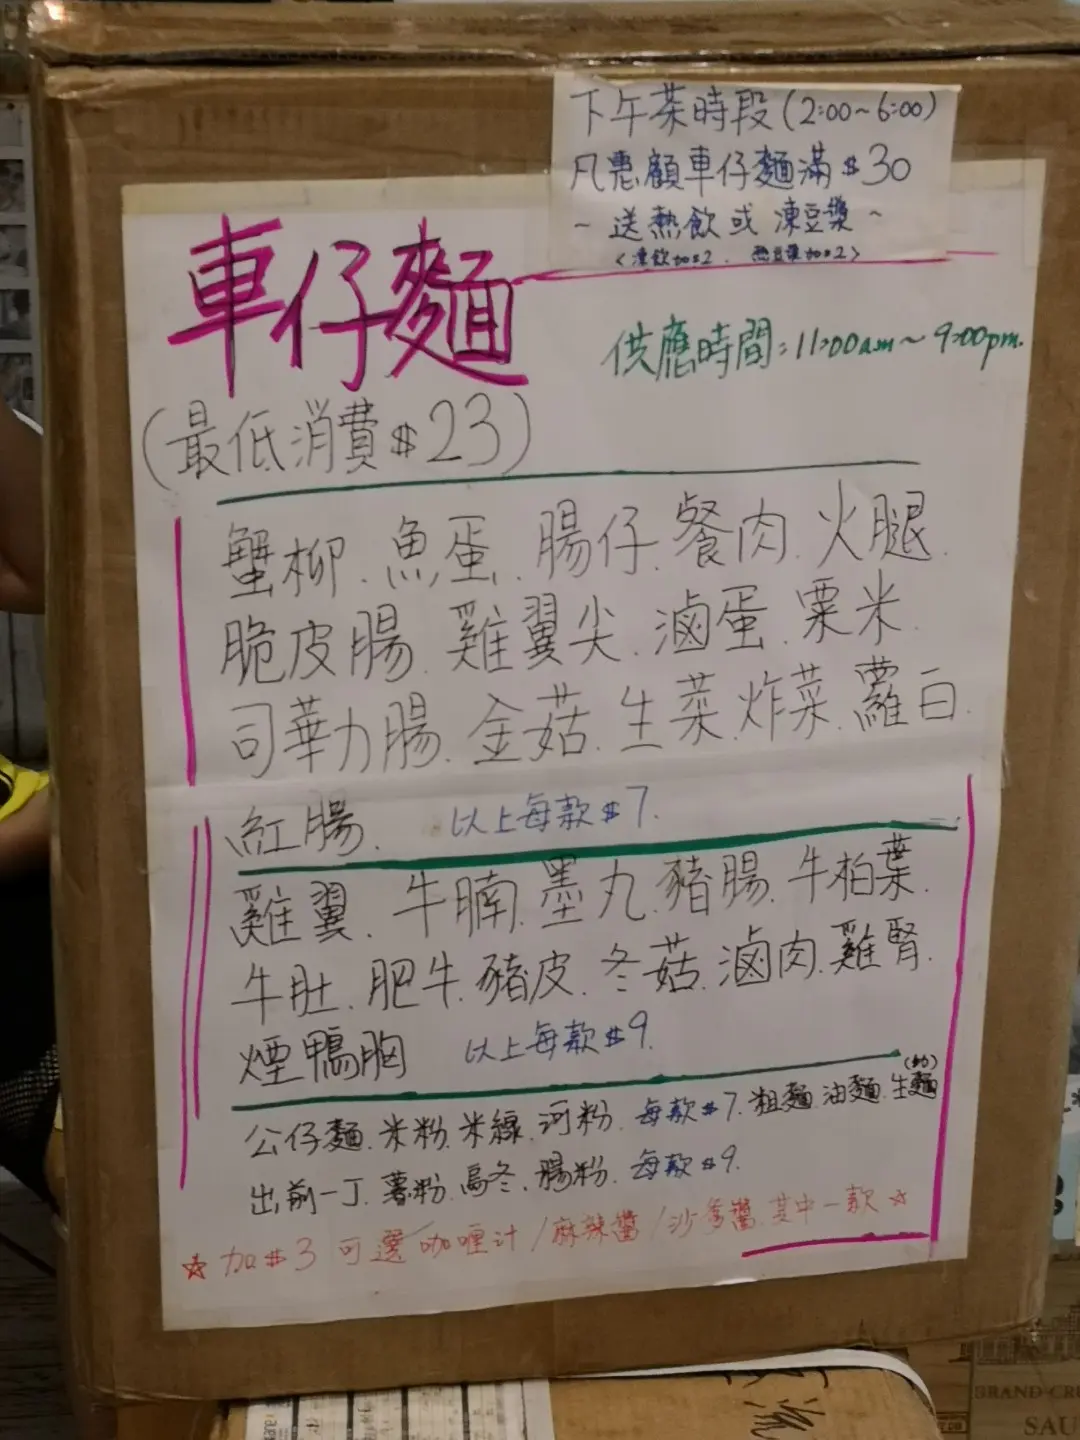 下午茶時段(2:00~6:00)
凡惠顧車仔麵滿$30
~送熱飲或凍豆漿~
<凍飲加$2. 熱豆漿加$2>
車仔麵
供應時間:11:00am~9:00pm.
(最低消費$23)
蟹柳.魚蛋.腸仔.餐肉.火腿.
脆皮腸.雞翼尖.滷蛋.粟米.
司華力腸.金菇.生菜.炸菜.蘿白.
紅腸. 以上每款$7.
雞翼.牛腩.墨丸.豬腸.牛柏葉.
牛肚.肥牛.豬皮.冬菇.滷肉.雞腎.
煙鴨胸 以上每款$9.
(幼)
公仔麵.米粉.米線.河粉.每款$7.粗麵.油麵.生麵
出前一丁.薯粉.烏冬.腸粉.每款$9.
☆加$3可選咖喱汁/麻辣醬/沙爹醬.其中一款☆
BRAND CRU
SAU